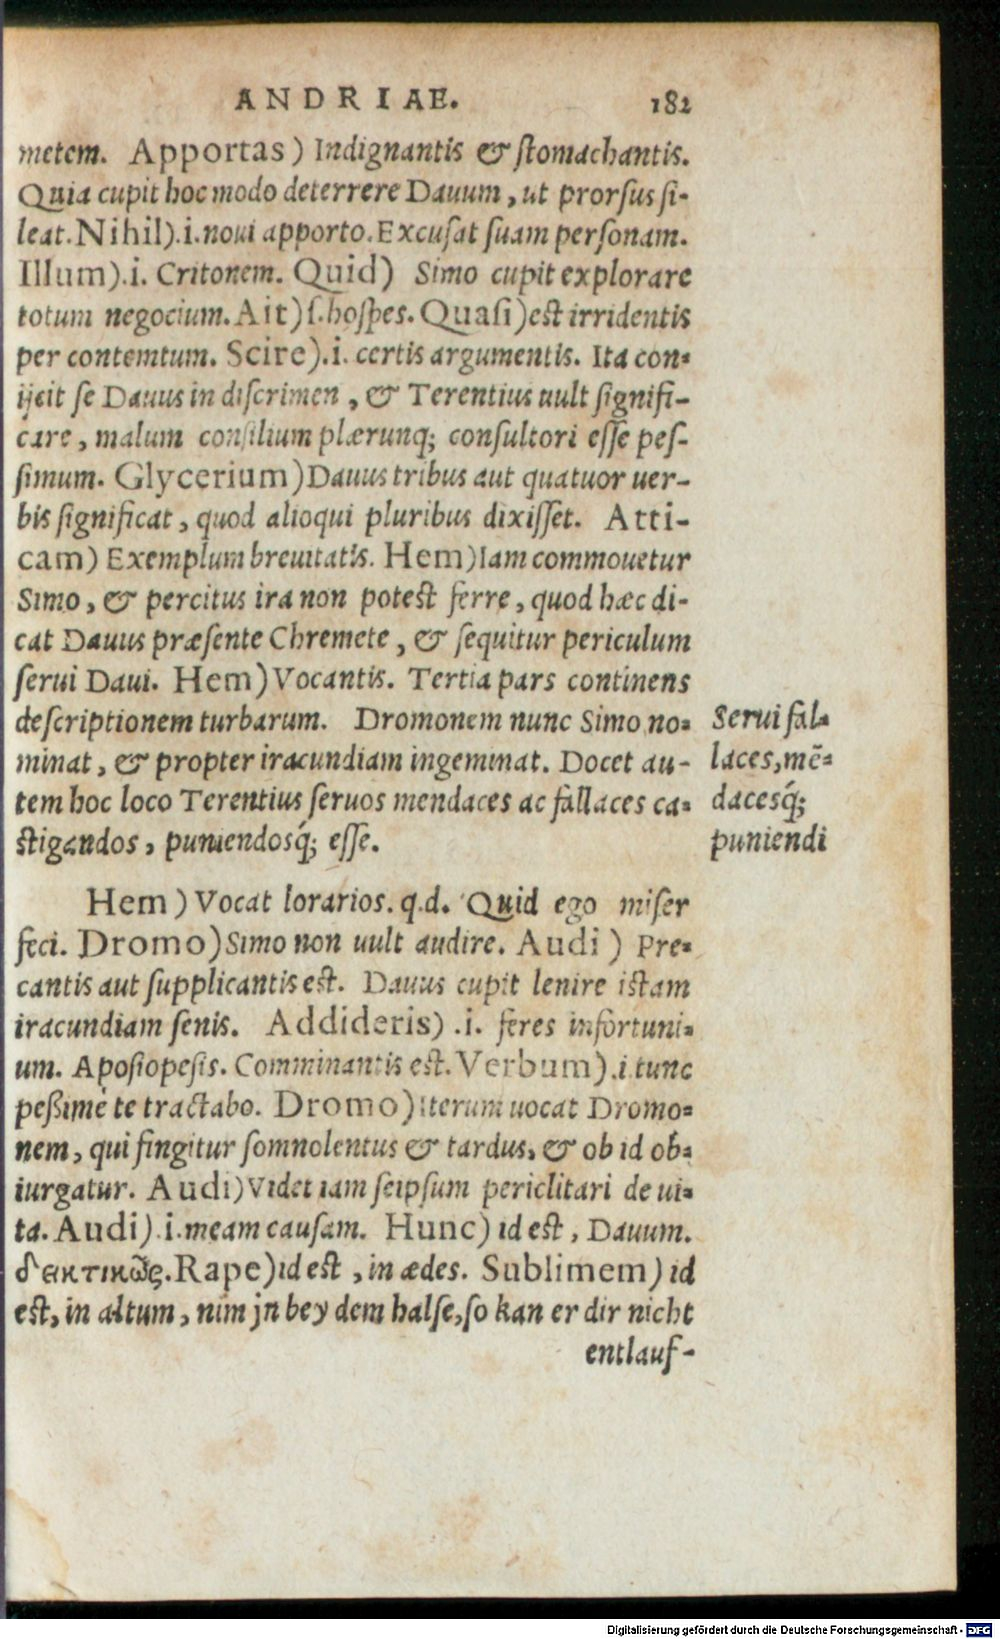 ANDRIAE. 182
metem. Apportas) Indignantis & stomachantis.
Quia cupit hoc modo deterrere Dauum, ut prorsus si-
leat. Nihil).i. noui apporto. Excusat suam personam.
Illum).i. Critonem. Quid) Simo cupit explorare
totum negocium. Ait) s. hospes. Quasi) est irridentis
per contemtum. Scire).i. certis argumentis. Ita con-
ijcit se Dauus in discrimen, & Terentius uult signifi-
care, malum consilium plærunq; consultori esse pes-
simum. Glycerium) Dauus tribus aut quatuor uer-
bis significat, quod alioqui pluribus dixisset. Atti-
cam) Exemplum breuitatis. Hem) Iam commouetur
Simo, & percitus ira non potest ferre, quod hæc di-
cat Dauus præsente Chremete, & sequitur periculum
serui Daui. Hem) Vocantis. Tertia pars continens
descriptionem turbarum. Dromonem nunc Simo no-
minat, & propter iracundiam ingeminat. Docet au-
tem hoc loco Terentius seruos mendaces ac fallaces ca-
stigandos, puniendosq́; esse.
Serui fal-
laces, mē-
dacesq́;
puniendi
Hem) Vocat lorarios. q.d. Quid ego miser
feci. Dromo) Simo non uult audire. Audi) Pre-
cantis aut supplicantis est. Dauus cupit lenire istam
iracundiam senis. Addideris) .i. feres infortuni-
um. Aposiopesis. Comminantis est. Verbum).i. tunc
peßimè te tractabo. Dromo) iterum uocat Dromo-
nem, qui fingitur somnolentus & tardus, & ob id ob-
iurgatur. Audi) Videt iam seipsum periclitari de ui-
ta. Audi).i. meam causam. Hunc) id est, Dauum.
δεικτικῶς. Rape) id est, in ædes. Sublimem) id
est, in altum, nim jn bey dem halse, so kan er dir nicht
entlauf-
Digitalisierung gefördert durch die Deutsche Forschungsgemeinschaft - DFG